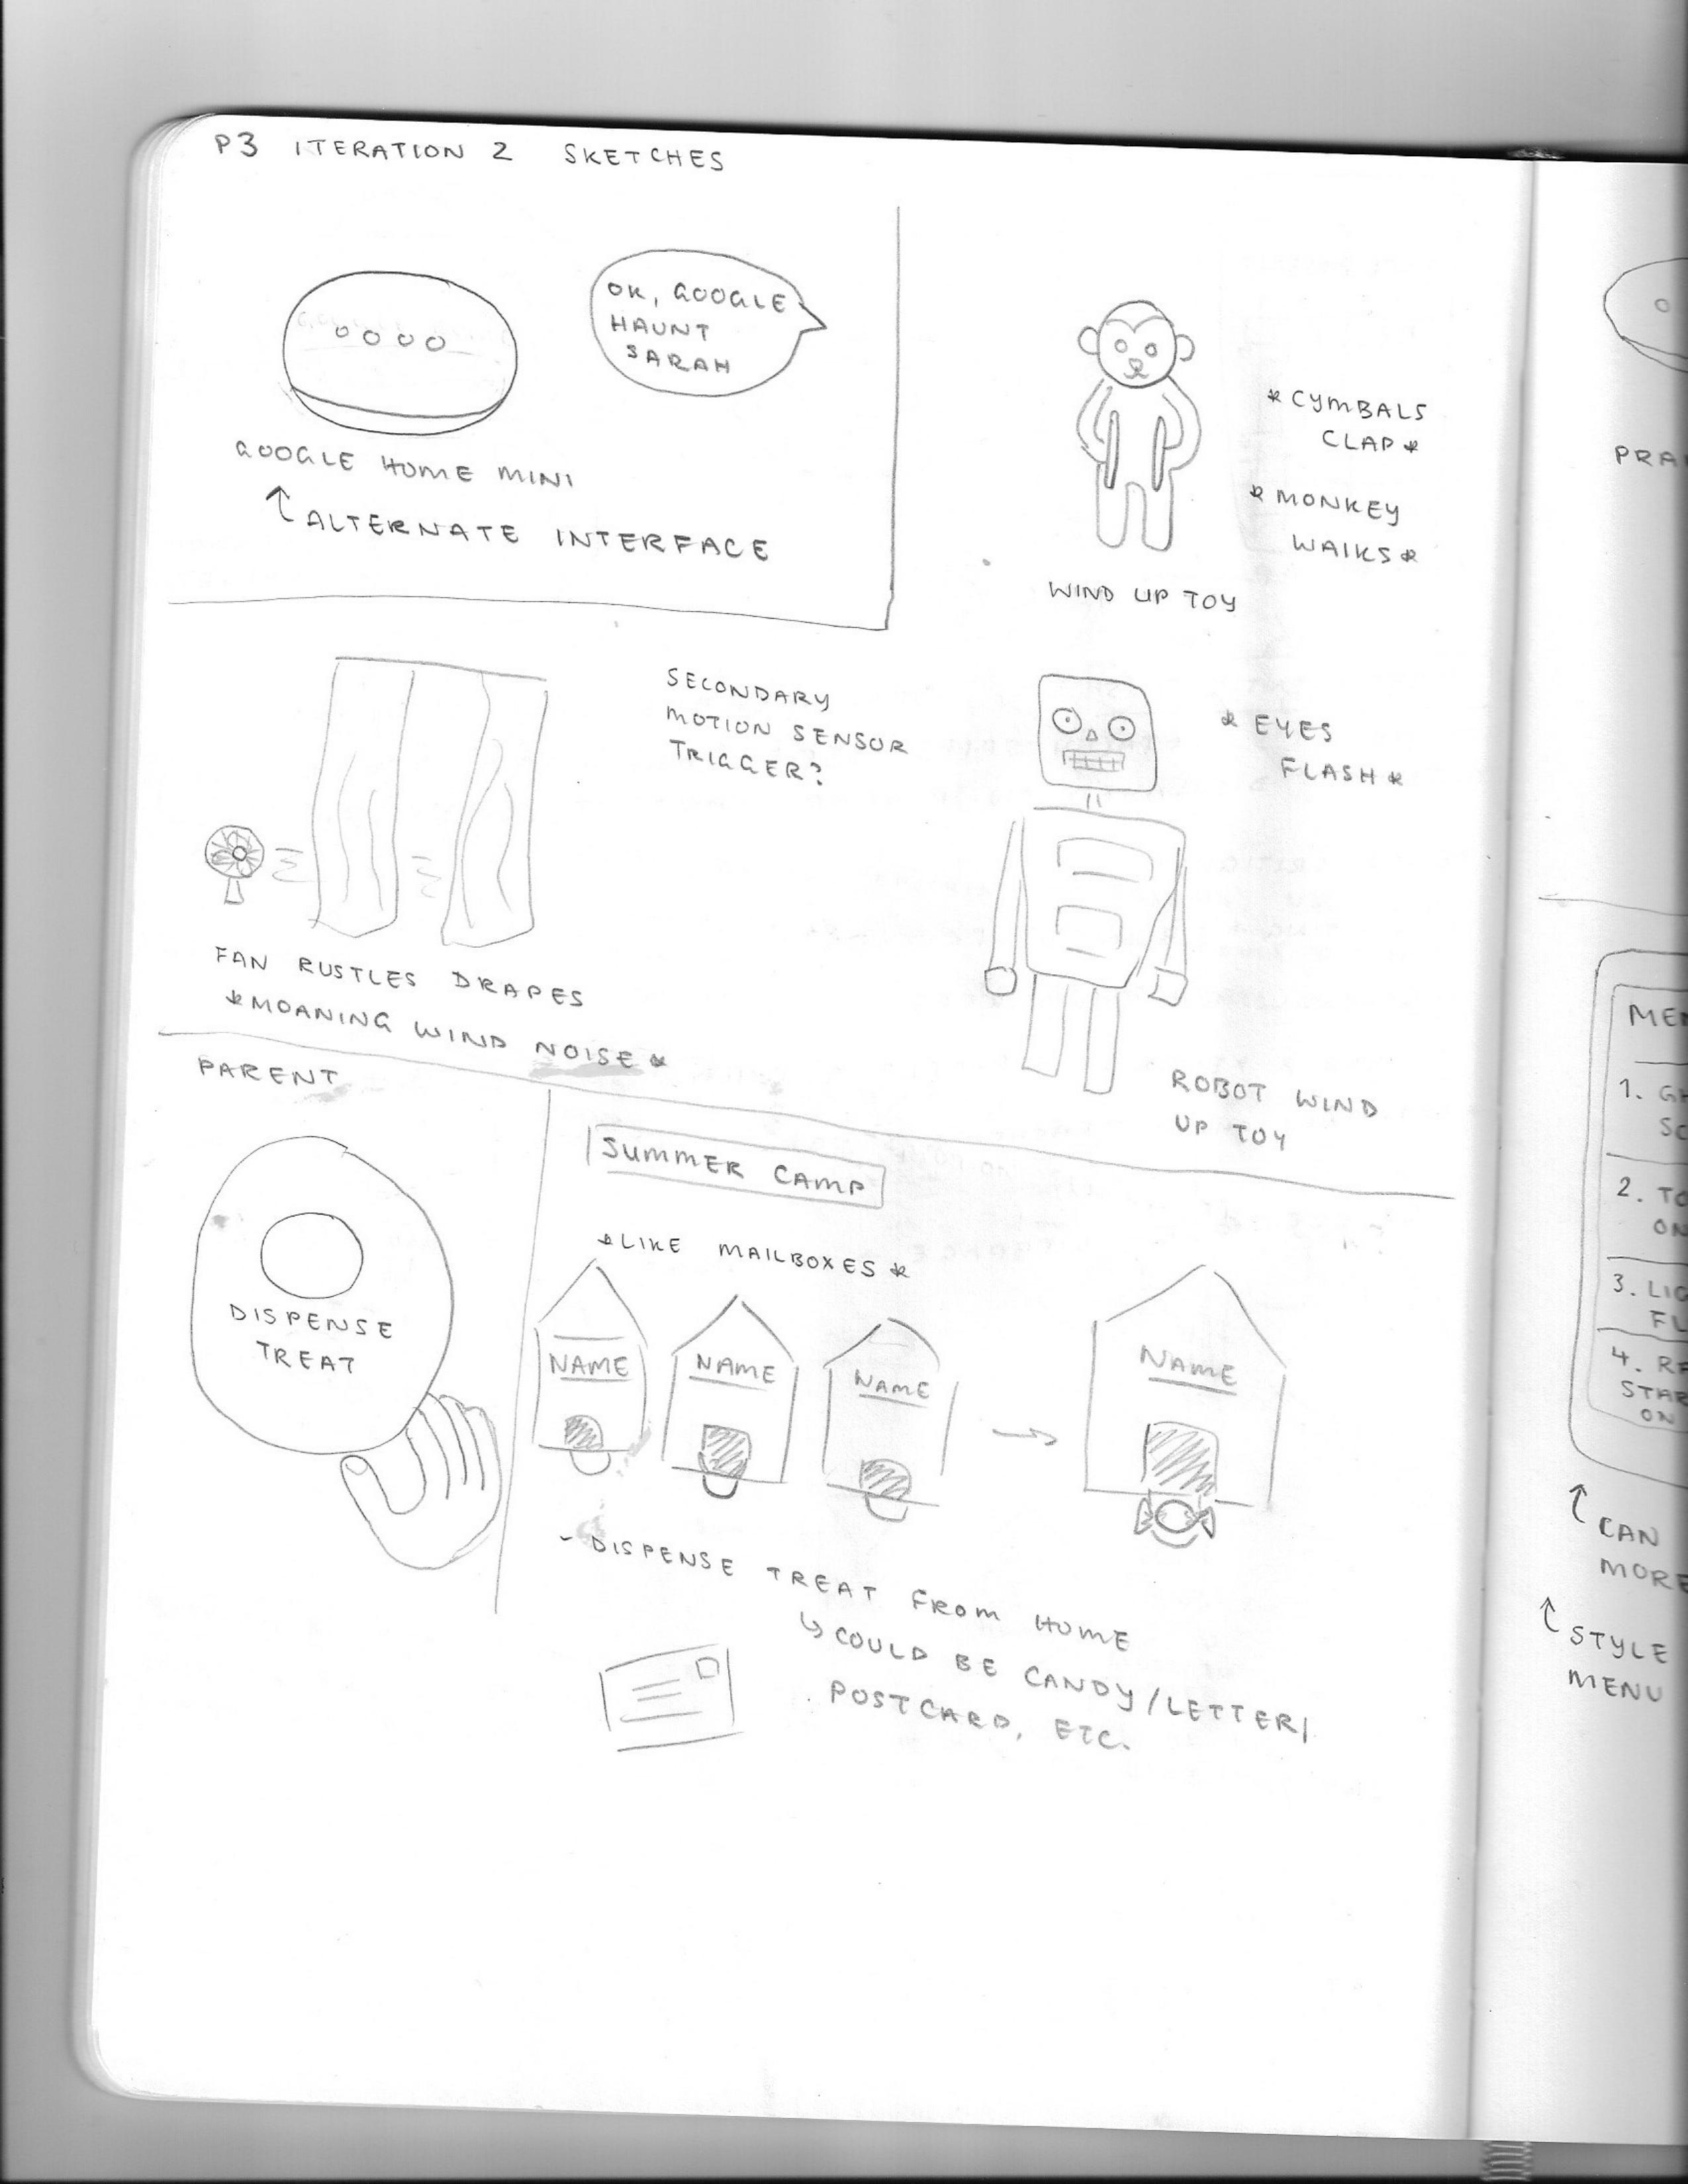 P3 ITERATION 2 SKETCHES
OK, GOOGLE
HAUNT
SARAH
GOOGLE HOME MINI
↑ ALTERNATE INTERFACE
* CYMBALS
CLAP *
* MONKEY
WALKS *
WIND UP TOY
SECONDARY
MOTION SENSOR
TRIGGER?
* EYES
FLASH *
FAN RUSTLES DRAPES
* MOANING WIND NOISE *
ROBOT WIND
UP TOY
PARENT
DISPENSE
TREAT
SUMMER CAMP
* LIKE MAILBOXES *
NAME
NAME
NAME
NAME
- DISPENSE TREAT FROM HOME
↳ COULD BE CANDY/LETTER/
POSTCARD, ETC.
PRA
ME
1. G
SC
2. TO
ON
3. LIG
FL
4. RE
STAR
ON
↑ CAN
MORE
↑ STYLE
MENU